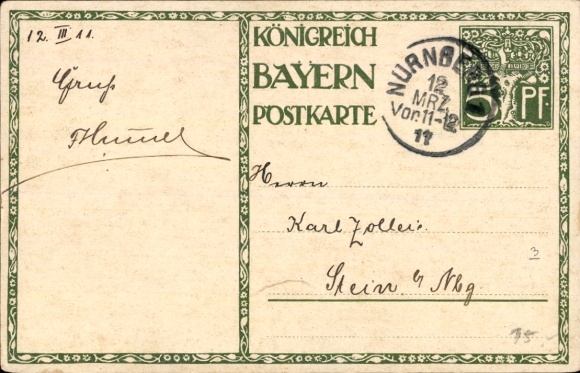 12. III 11.
Gruß
KÖNIGREICH
BAYERN
POSTKARTE
NÜRNBERG
12
MRZ
Vor. 11-12
11
5 PF.
Herrn
Karl
Stein b/ Nbg
3